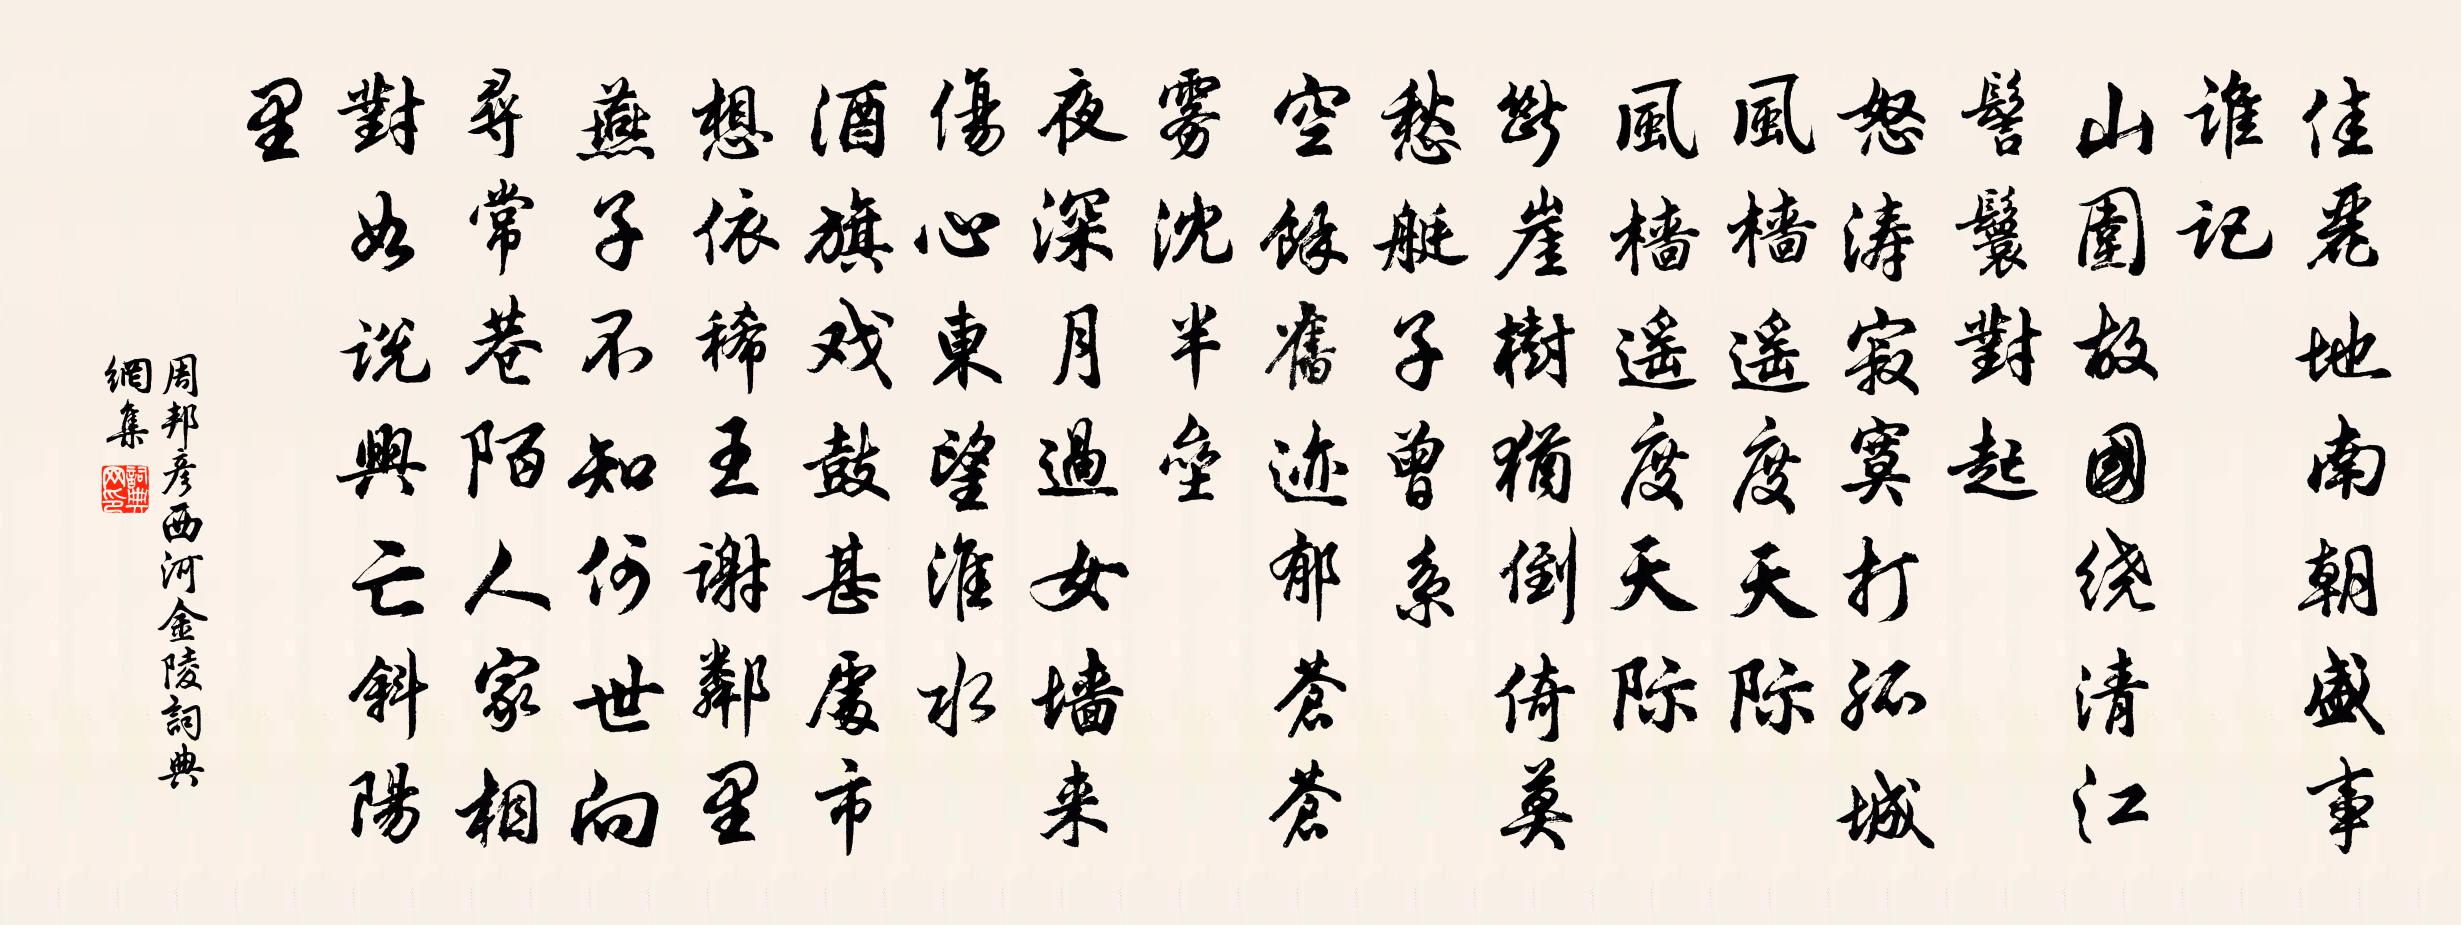 佳麗地南朝盛事
誰記
山圍故國绕清江
髻鬟對起
怒涛寂寞打孤城
風樯遥度天际
風樯遥度天际
斷崖樹猶倒倚莫
愁艇子曾系
空餘舊迹郁蒼蒼
雾沈半壘
夜深月過女墙来
傷心東望淮水
酒旗戏鼓甚處市
想依稀王谢鄰里
燕子不知何世向
尋常巷陌人家相
對如说興亡斜陽
里
周邦彦西河金陵詞典
網集
詞典網